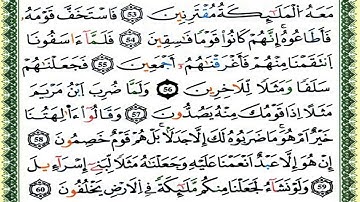 مَعَهُ الْمَلَٰٓئِكَةُ مُقْتَرِنِينَ ۝٥٣ فَاسْتَخَفَّ قَوْمَهُۥ
فَأَطَاعُوهُ ۚ إِنَّهُمْ كَانُوا۟ قَوْمًا فَٰسِقِينَ ۝٥٤ فَلَمَّآ ءَاسَفُونَا
انتَقَمْنَا مِنْهُمْ فَأَغْرَقْنَٰهُمْ أَجْمَعِينَ ۝٥٥ فَجَعَلْنَٰهُمْ
سَلَفًا وَمَثَلًا لِّلْءَاخِرِينَ ۝٥٦ وَلَمَّا ضُرِبَ ابْنُ مَرْيَمَ
مَثَلًا إِذَا قَوْمُكَ مِنْهُ يَصُدُّونَ ۝٥٧ وَقَالُوٓا۟ ءَأَٰلِهَتُنَا
خَيْرٌ أَمْ هُوَ ۚ مَا ضَرَبُوهُ لَكَ إِلَّا جَدَلًۢا ۚ بَلْ هُمْ قَوْمٌ خَصِمُونَ ۝٥٨
إِنْ هُوَ إِلَّا عَبْدٌ أَنْعَمْنَا عَلَيْهِ وَجَعَلْنَٰهُ مَثَلًا لِّبَنِىٓ إِسْرَٰٓءِيلَ ۝٥٩
وَلَوْ نَشَآءُ لَجَعَلْنَا مِنكُم مَّلَٰٓئِكَةً فِى الْأَرْضِ يَخْلُفُونَ ۝٦٠